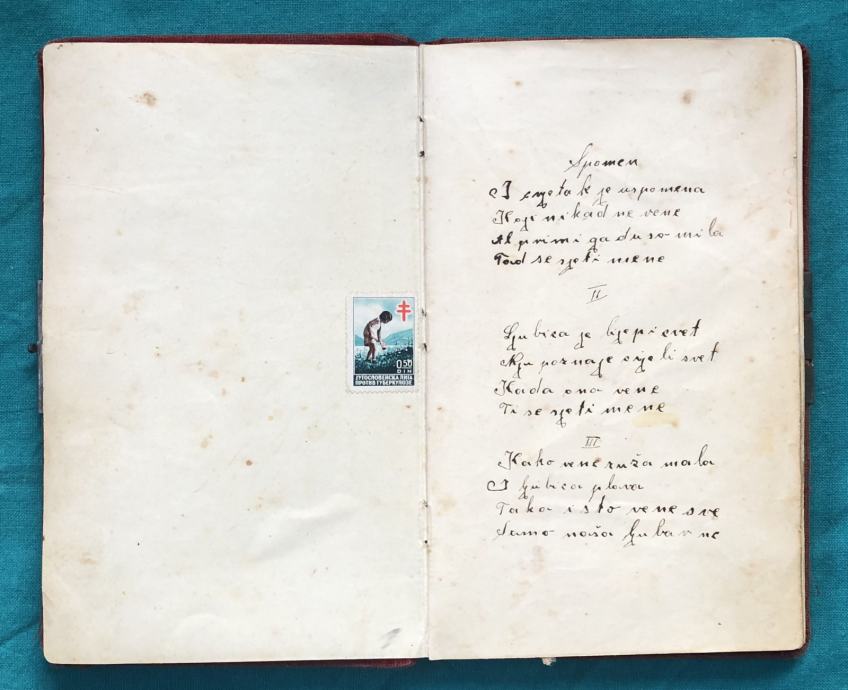 0.50
DIN
ЈУГОСЛОВЕНСКА ЛИГА
ПРОТИВ ТУБЕРКУЛОЗЕ
Spomen
I cvjetak je uspomena
Koji nikad ne vene
Al primi ga dušo mila
Tad se sjeti mene
II
Ljubica je ljepi cvet
Nju poznaje cijeli svet
Kada ona vene
Ti se sjeti mene
III
Kako vene ruža mala
I ljubica plava
Tako isto vene sve
Samo naša ljubav ne